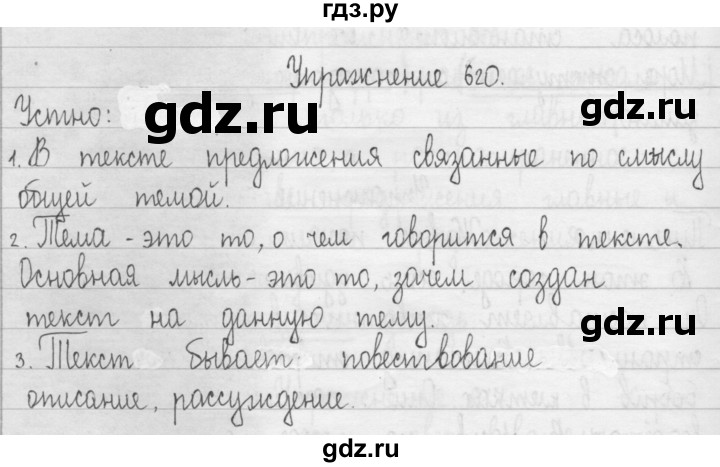 гдз.ру
Упражнение 620.
Устно:
gdz.ru
gdz.ru
1. В тексте предложения связанные по смыслу
общей темой.
2. Тема - это то, о чем говорится в тексте.
Основная мысль - это то, зачем создан
gdz.ru
gdz.ru
текст на данную тему.
3. Текст бывает повествование
описание, рассуждение.
gdz.ru